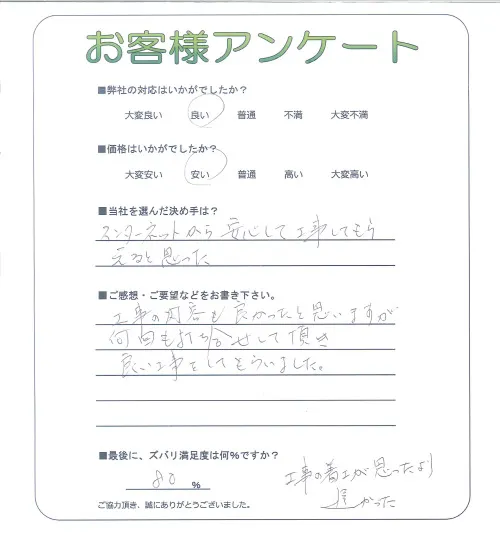 お客様アンケート
■弊社の対応はいかがでしたか？
大変良い　良い　普通　不満　大変不満
■価格はいかがでしたか？
大変安い　安い　普通　高い　大変高い
■当社を選んだ決め手は？
インターネットから安心して工事してもら
えると思った
■ご感想・ご要望などをお書き下さい。
工事の内容も良かったと思いますが
何回も打ち合せして頂き
良い工事をしてもらいました。
■最後に、ズバリ満足度は何％ですか？
80 ％
工事の着工が思ったより
遅かった
ご協力頂き、誠にありがとうございました。